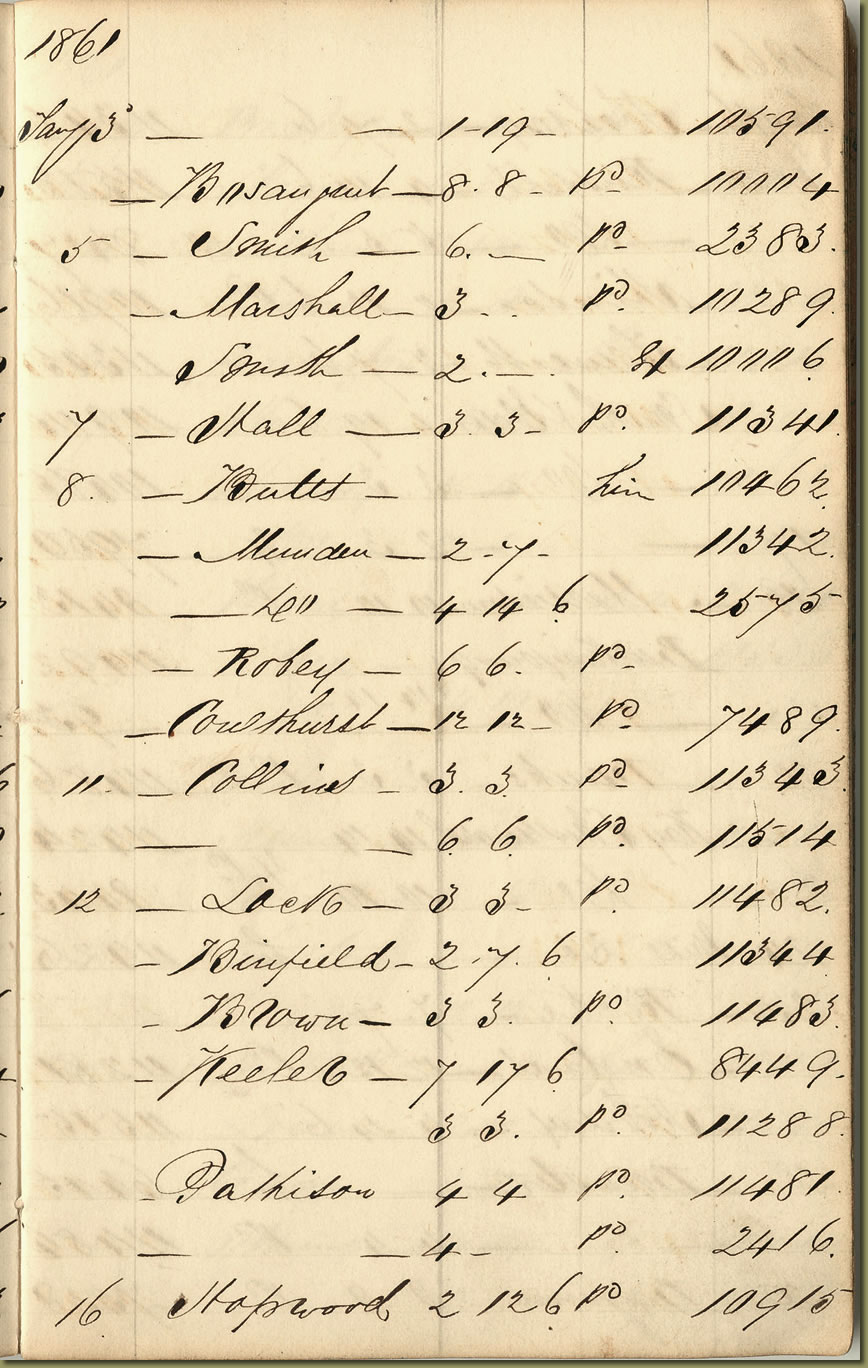 1861
Jany 3 — — 1-19- 10591.
— Bosanquet — 8. 8 - pd 10004
5 — Smith — 6. — pd 2383.
— Marshall — 3 . . pd. 10289.
Smith — 2. — . 10006
7 — Hall — 3. 3- pd. 11341
8. — Butts — 10462.
— Munden — 2-7- 11342.
— Leo — 4 14 6 2575
— Robey — 6 6. pd-
— Coulthurst — 12 12- pd 7489.
11. — Collins — 3. 3. pd 11343.
— — 6. 6. pd. 11514
12 — Lock — 3 3- pd. 11482.
— Binfield — 2.7. 6 11344
- Brown — 3 3. pd. 11483.
- Keeler — 7 17 6 8449.
3 3. pd. 11288.
- Pattison 4 4 pd. 11481
— — 4- pd. 2416.
16 Hopwood 2 12 6 pd 10915